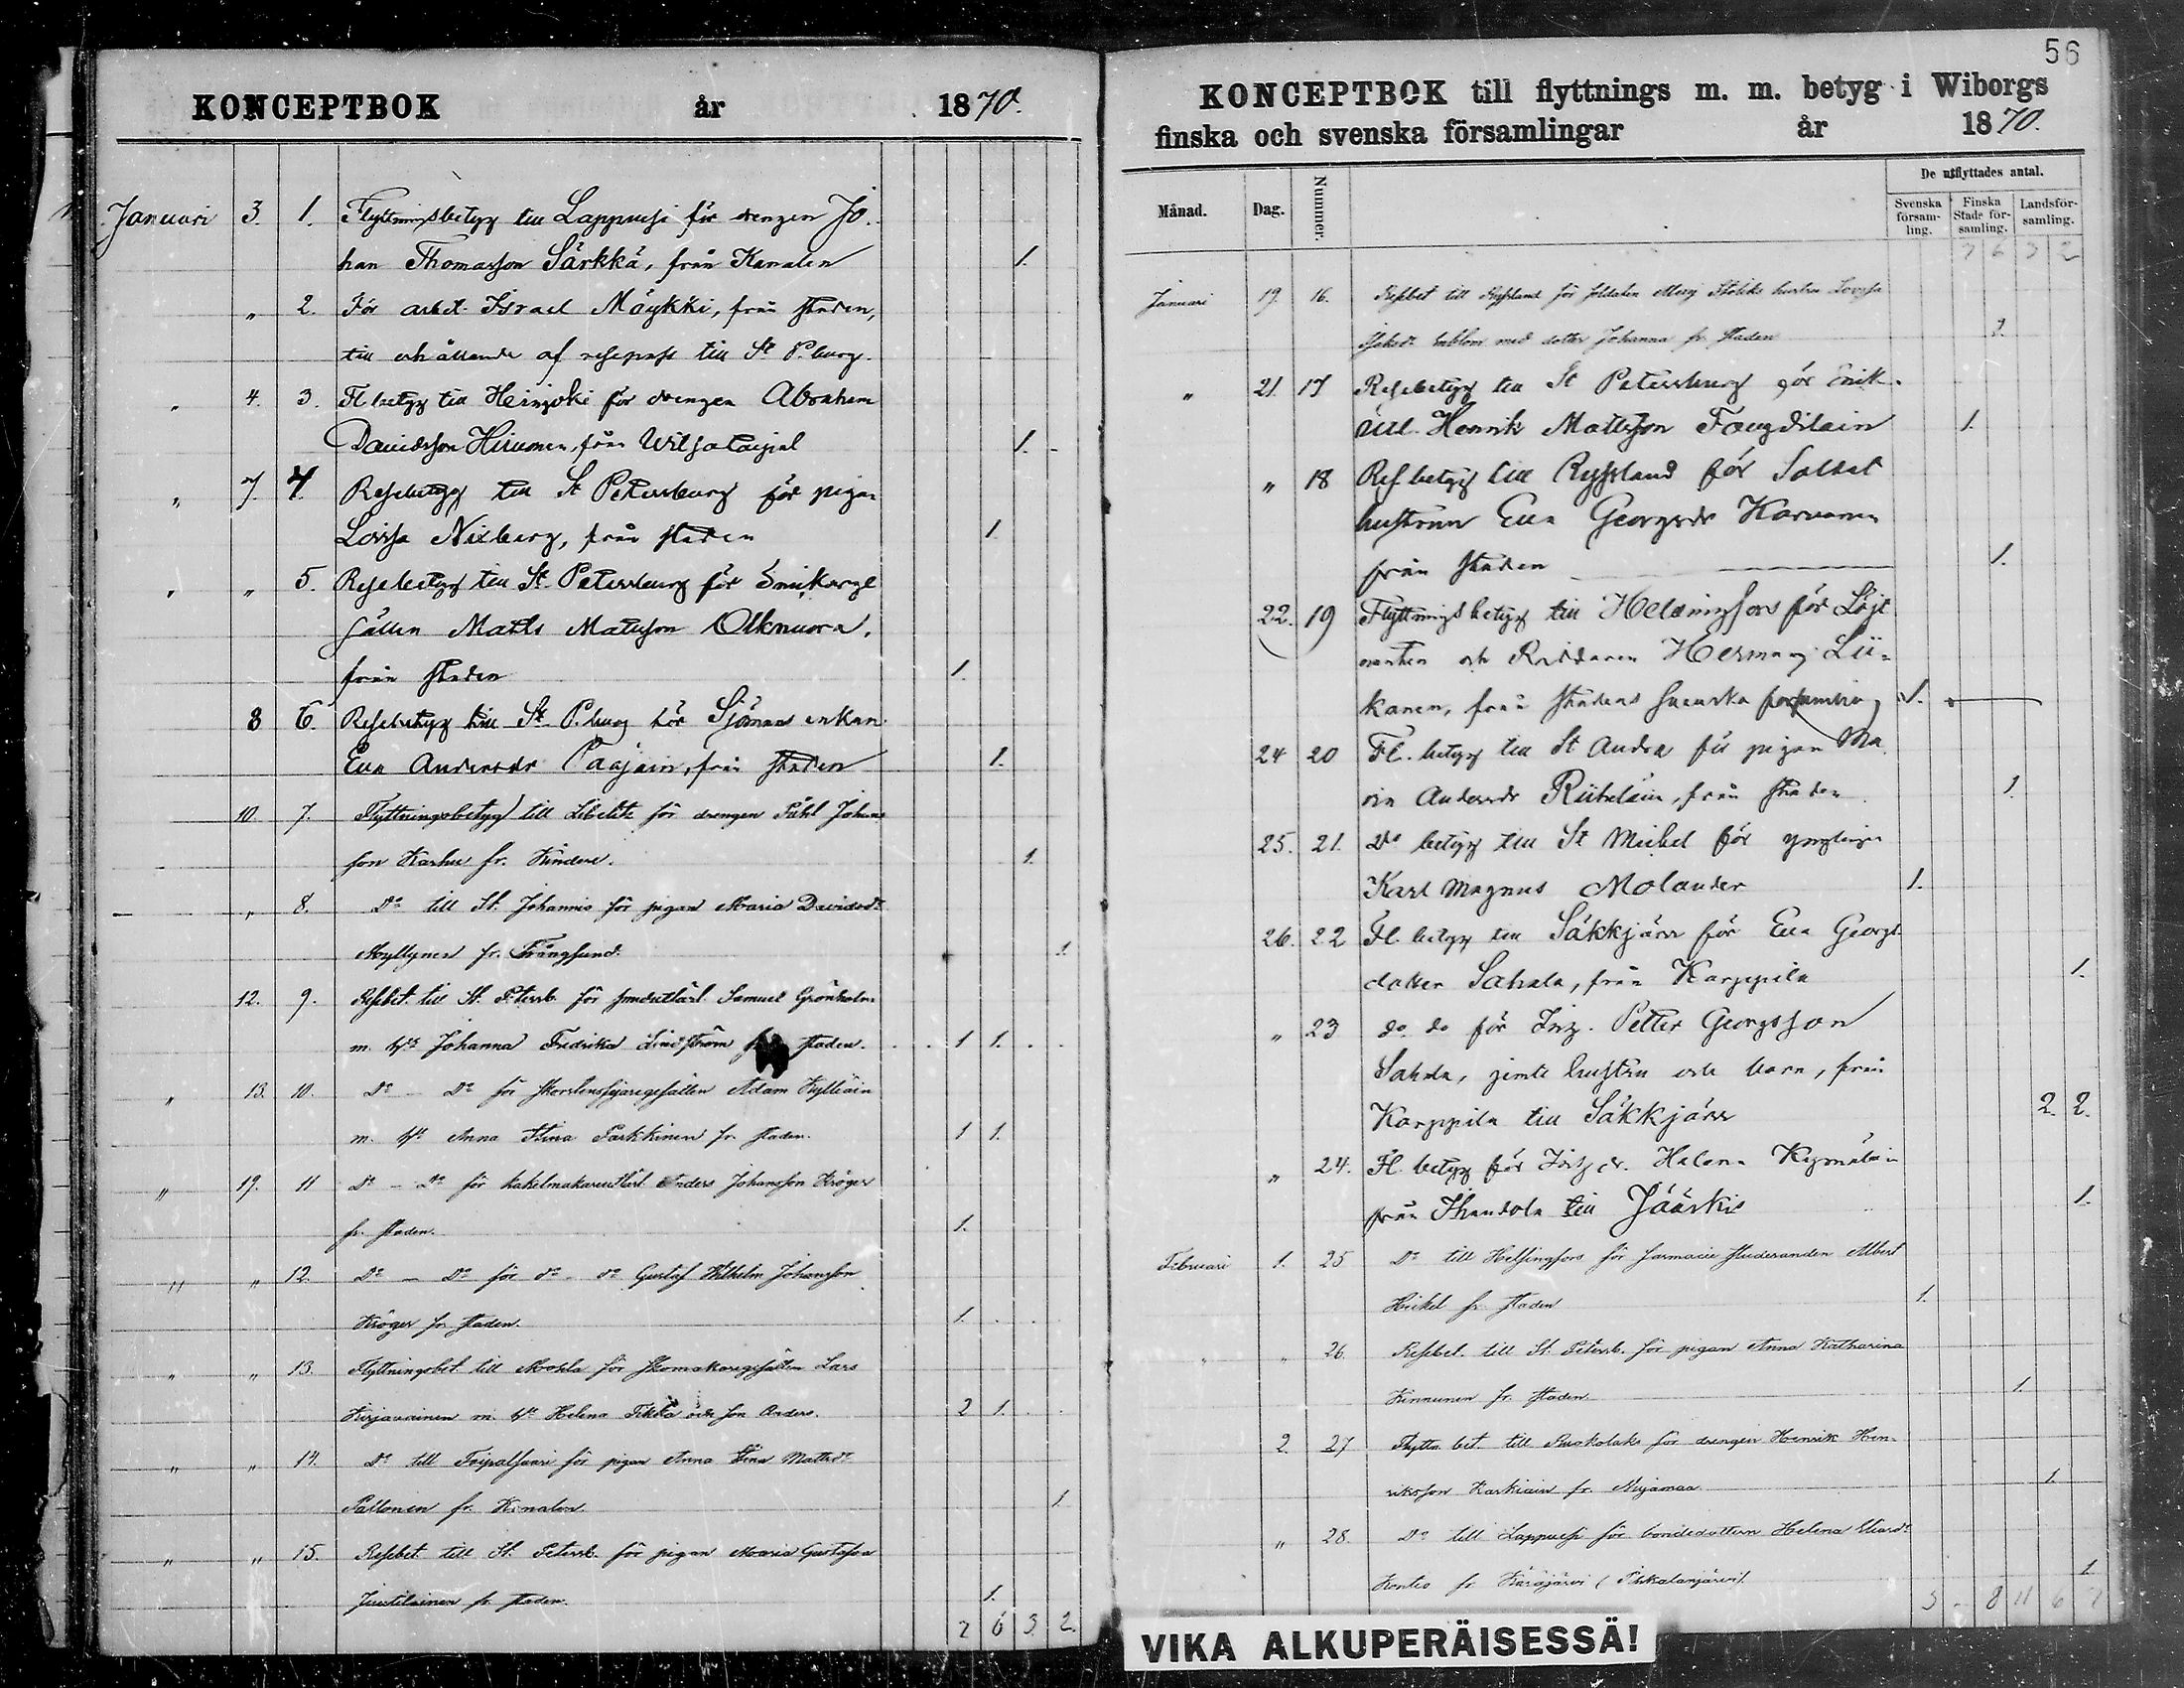 KONCEPTBOK år 1870.
Januari 3. 1. Flyttningsbetyg till Lappvesi för drengen Jo-
han Thomasson Särkkä, från Kanalen 1.
„ 2. För arbet. Israel Mäykki, från staden,
till erhållande af resepass till St P.burg.
„ 4. 3. Fl betyg till Heinjoki för drengen Abraham
Davidsson Hinonen, från 1.
„ 7. 4. Resebetyg till St Petersburg för pigan
Lovisa Nixberg, från staden 1
„ „ 5. Resebetyg till St. Petersburg för
sällen Matts Mattsson Olkinuora,
från staden 1.
8 6. Resebetyg till St. P.burg för Sjömansenkan
Eva Andersdr Paajain, från staden 1.
10. 7. Flyttningsbetyg till Libelits för drengen Påhl Johans
son Karhu fr. 1.
„ 8. Do till St. Johannis för pigan Maria Davidsdr
Myllynen fr. Trångsund. 1
12. 9. Resbet. till St. Petersb. för Samuel Grönholm
m. hst Johanna Fredrika Lindström staden. 1 1.
„ 13. 10. Do - Do för skorstensfejaregesällen Adam Kylliäin
m. hst Anna Stina Parkkinen fr. staden. 1 1.
„ 19. 11 Do - Do för kakelmakare Anders Johansson Kröger
fr. staden. 1.
„ „ 12. Do - Do för do - do Gustaf Wilhelm Johansson
Kröger fr. staden. 1.
„ „ 13. Flyttningsbet. till Mohla för skomakaregesällen Lars
Kirjavainen m. hst Helena Tikka och son Anders. 2 1.
„ „ 14. Do till Toipalsaari för pigan Anna Stina Mattsdr
Pallonen fr. Kanalen 1
„ „ 15. Resbet. till St. Petersb. för pigan Maria Gustafva
Juutilainen fr. staden. 1.
7 6 3 2.
56
KONCEPTBOK till flyttnings m. m. betyg i Wiborgs
finska och svenska församlingar år 1870.
Månad. Dag. Nummer. De utflyttades antal.
Svenska försam-ling. Finska Stads för-samling. Landsför-samling.
7 6 3 2
Januari 19. 16. Resbet till Ryssland för soldaten hustru Lovisa
med dotter Johanna fr. staden 2.
„ 21. 17 Resebetyg till St Petersburg för
Henrik Mattsson 1.
„ 18 Res betyg till Ryssland för Soldat
hustrun Eva Georgsdr Karvonen
från staden 1.
22. 19 Flyttningsbetyg till Helsingfors för Löjt
nanten och Riddaren Herman Lü-
kanen, från stadens svenska församling 1.
24 20 Fl. betyg till St Andra för pigan Ma
ria Andersdr från staden 1.
25. 21. Do betyg till St Michel för ynglingen
Karl Magnus Molander 1.
26. 22 Fl. betyg till Säkkjärvi för Eva Georgs
dotter Sahala, från Karppila 1.
„ 23 do do för Inh. Petter Georgsson
Sahala, jemte hustru och barn, från
Karppila till Säkkjärvi 2. 2.
„ 24. Fl. betyg för Inh. dr. Helena Kymäläin
från Ihandola till Jääskis 1.
Februari 1. 25 Do till Helsingfors för farmacie studeranden Albert
fr. staden 1.
„ „ 26. Resbet. till St. Petersb. för pigan Anna Katharina
Kinnunen fr. staden 1.
2 27 Flyttn. bet. till Ruokolaks för drengen Henrik Hen-
riksson Karkiain fr. Nuijamaa 1.
„ 28. Do till Lappvesi för bondedottern Helena
Kontio fr. Kärsjärvi 1
3 - 8 11 6 7
VIKA ALKUPERÄISESSÄ!